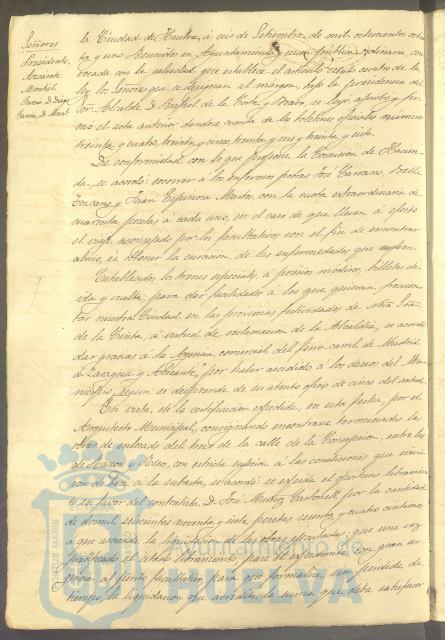 Señores
Presidente
la Ciudad de Huelva, á seis de Setiembre, de mil ochocientos ochen
ta y uno. Reunidos en Ayuntamiento y sesion pública ordinaria, con
vocada con la salvedad que establece el artículo ciento cuatro de la
ley, los Señores que se designan al margen, bajo la presidencia del
Sor. Alcalde D. Rafael de la Corte y Bravo, se leyó, aprobó y fir
mó el acta anterior, dandose cuenta de los boletines oficiales números
treinta y cuatro, treinta y cinco, treinta y seis y treinta y siete.
De conformidad con lo que propone la Comision de Hacien
da, se acordó: socorrer á los enfermos pobres José Carrasco,
y Juan Espinosa Martin, con la cuota extraordinaria de
cuarenta pesetas á cada uno, en el caso de que lleven á efecto
el viaje aconsejado por los facultativos con el fin de encontrar
alivio, ú obtener la curacion de las enfermedades que sufren.
Establecidos los trenes especiales, á precios módicos, billetes de
ida y vuelta, para dar facilidades á los que quieran frecuen
tar nuestra Ciudad en las próximas festividades de Ntra. Sra.
de la Cinta, á virtud de reclamacion de la Alcaldía, se acordó
dar gracias á la Agencia comercial del ferro carril de Madrid
á Zaragoza y Alicante, por haber accedido á los deseos del Mu
nicipio, segun se desprende de su atento oficio de cinco del actual.
En vista de la certificacion expedida, en esta fecha, por el
Arquitecto Municipal, consignando encontrarse terminadas las
obras de enlosado del trozo de la calle de la Concepcion, entre las
de Rascon y Odiel, con estricta sujecion á las condiciones que sirvie
ron de base á la subasta, se acordó: se expida el oportuno libramien
to en favor del contratista D. José Muñoz por la cantidad
de dos mil, seiscientas noventa y siete pesetas sesenta y cuatro centimos
á que asciende la liquidacion de las obras ejecutadas; que una vez
justificado el citado libramiento, pase el expediente, con gran ur
gencia, al perito facultativo, para que formalice, sin perdida de
tiempo, la liquidacion que acredite la suma que deba satisfacer
PORTUS MARIS
Ayuntamiento de
HUELVA